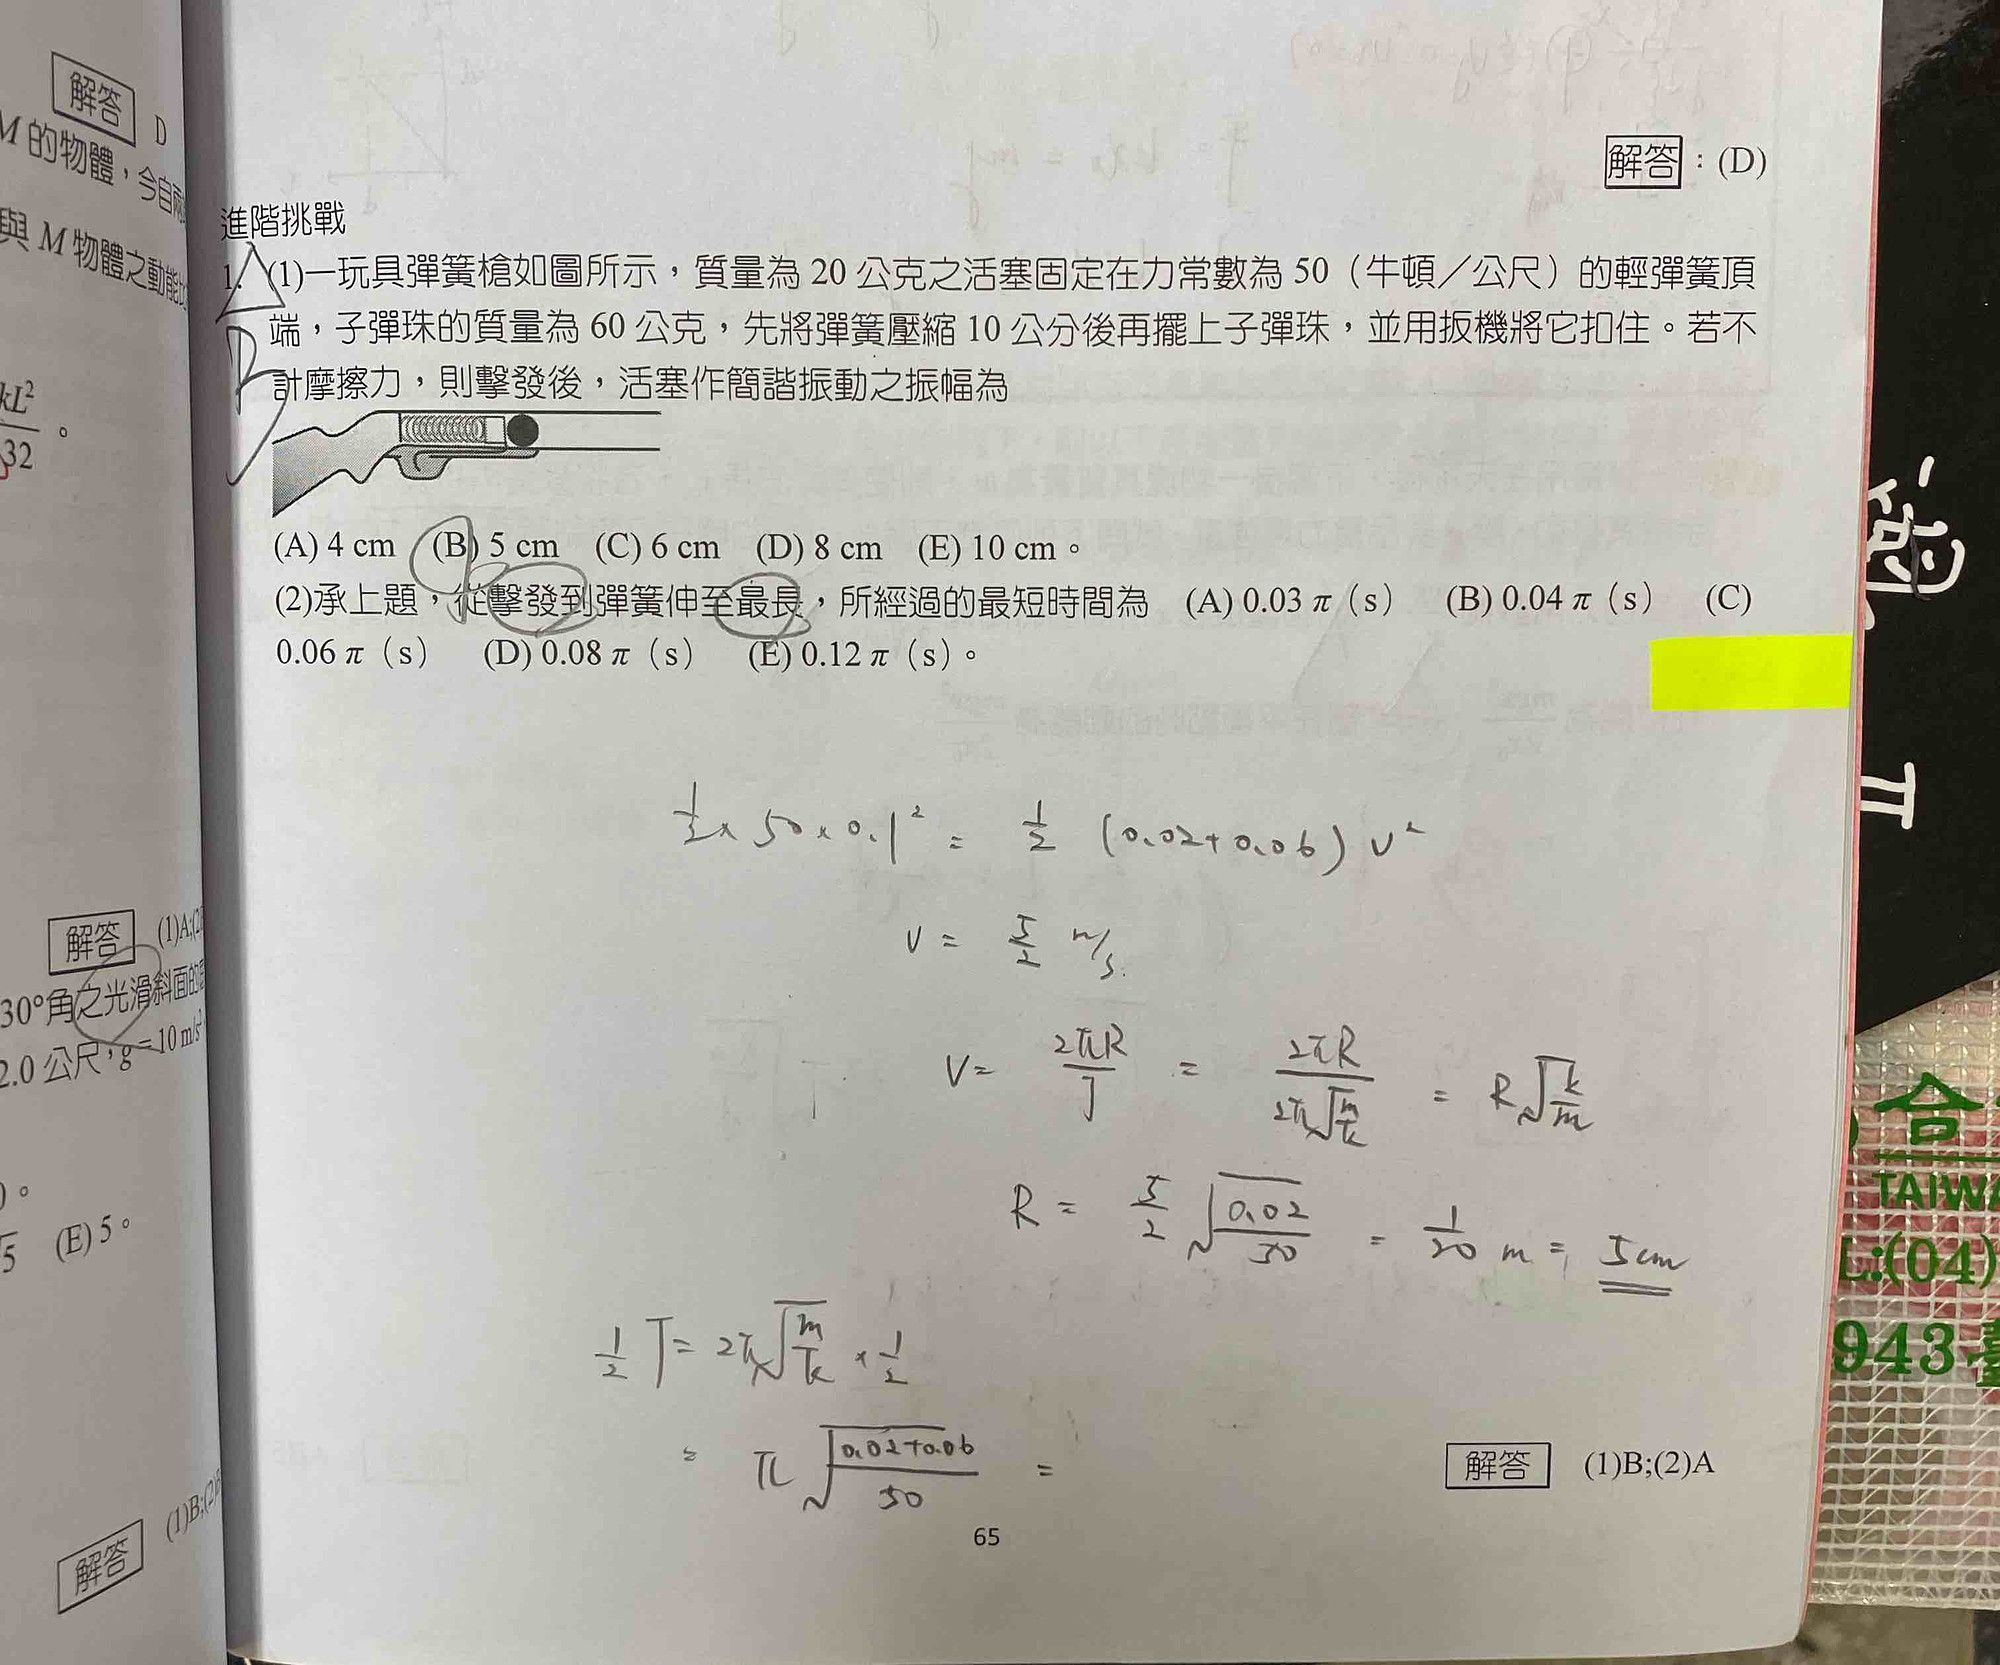 解答 D
M 的物體，今自兩
與 M 物體之動能比
kL²
32 。
解答 (1)A;(2)
30°角之光滑斜面的
2.0 公尺，g = 10 m/s²
。
5 (E) 5。
解答 (1)B;(2)
解答：(D)
進階挑戰
1. (1)一玩具彈簧槍如圖所示，質量為 20 公克之活塞固定在力常數為 50（牛頓／公尺）的輕彈簧頂
B
端，子彈珠的質量為 60 公克，先將彈簧壓縮 10 公分後再擺上子彈珠，並用扳機將它扣住。若不
計摩擦力，則擊發後，活塞作簡諧振動之振幅為
(A) 4 cm (B) 5 cm (C) 6 cm (D) 8 cm (E) 10 cm。
(2)承上題，從擊發到彈簧伸至最長，所經過的最短時間為 (A) 0.03 π（s） (B) 0.04 π（s） (C)
0.06 π（s） (D) 0.08 π（s） (E) 0.12 π（s）。
1/2 × 50 × 0.1² = 1/2 (0.02+0.06) V²
V = 5/2 m/s.
V = 2πR/T = 2πR/2π√(m/k) = R√(k/m)
R = 5/2 √(0.02/50) = 1/20 m = 5cm
1/2 T = 2π√(m/k) × 1/2
= π √(0.02+0.06/50) =
解答 (1)B;(2)A
65
合
TAIWA
L:(04)
943